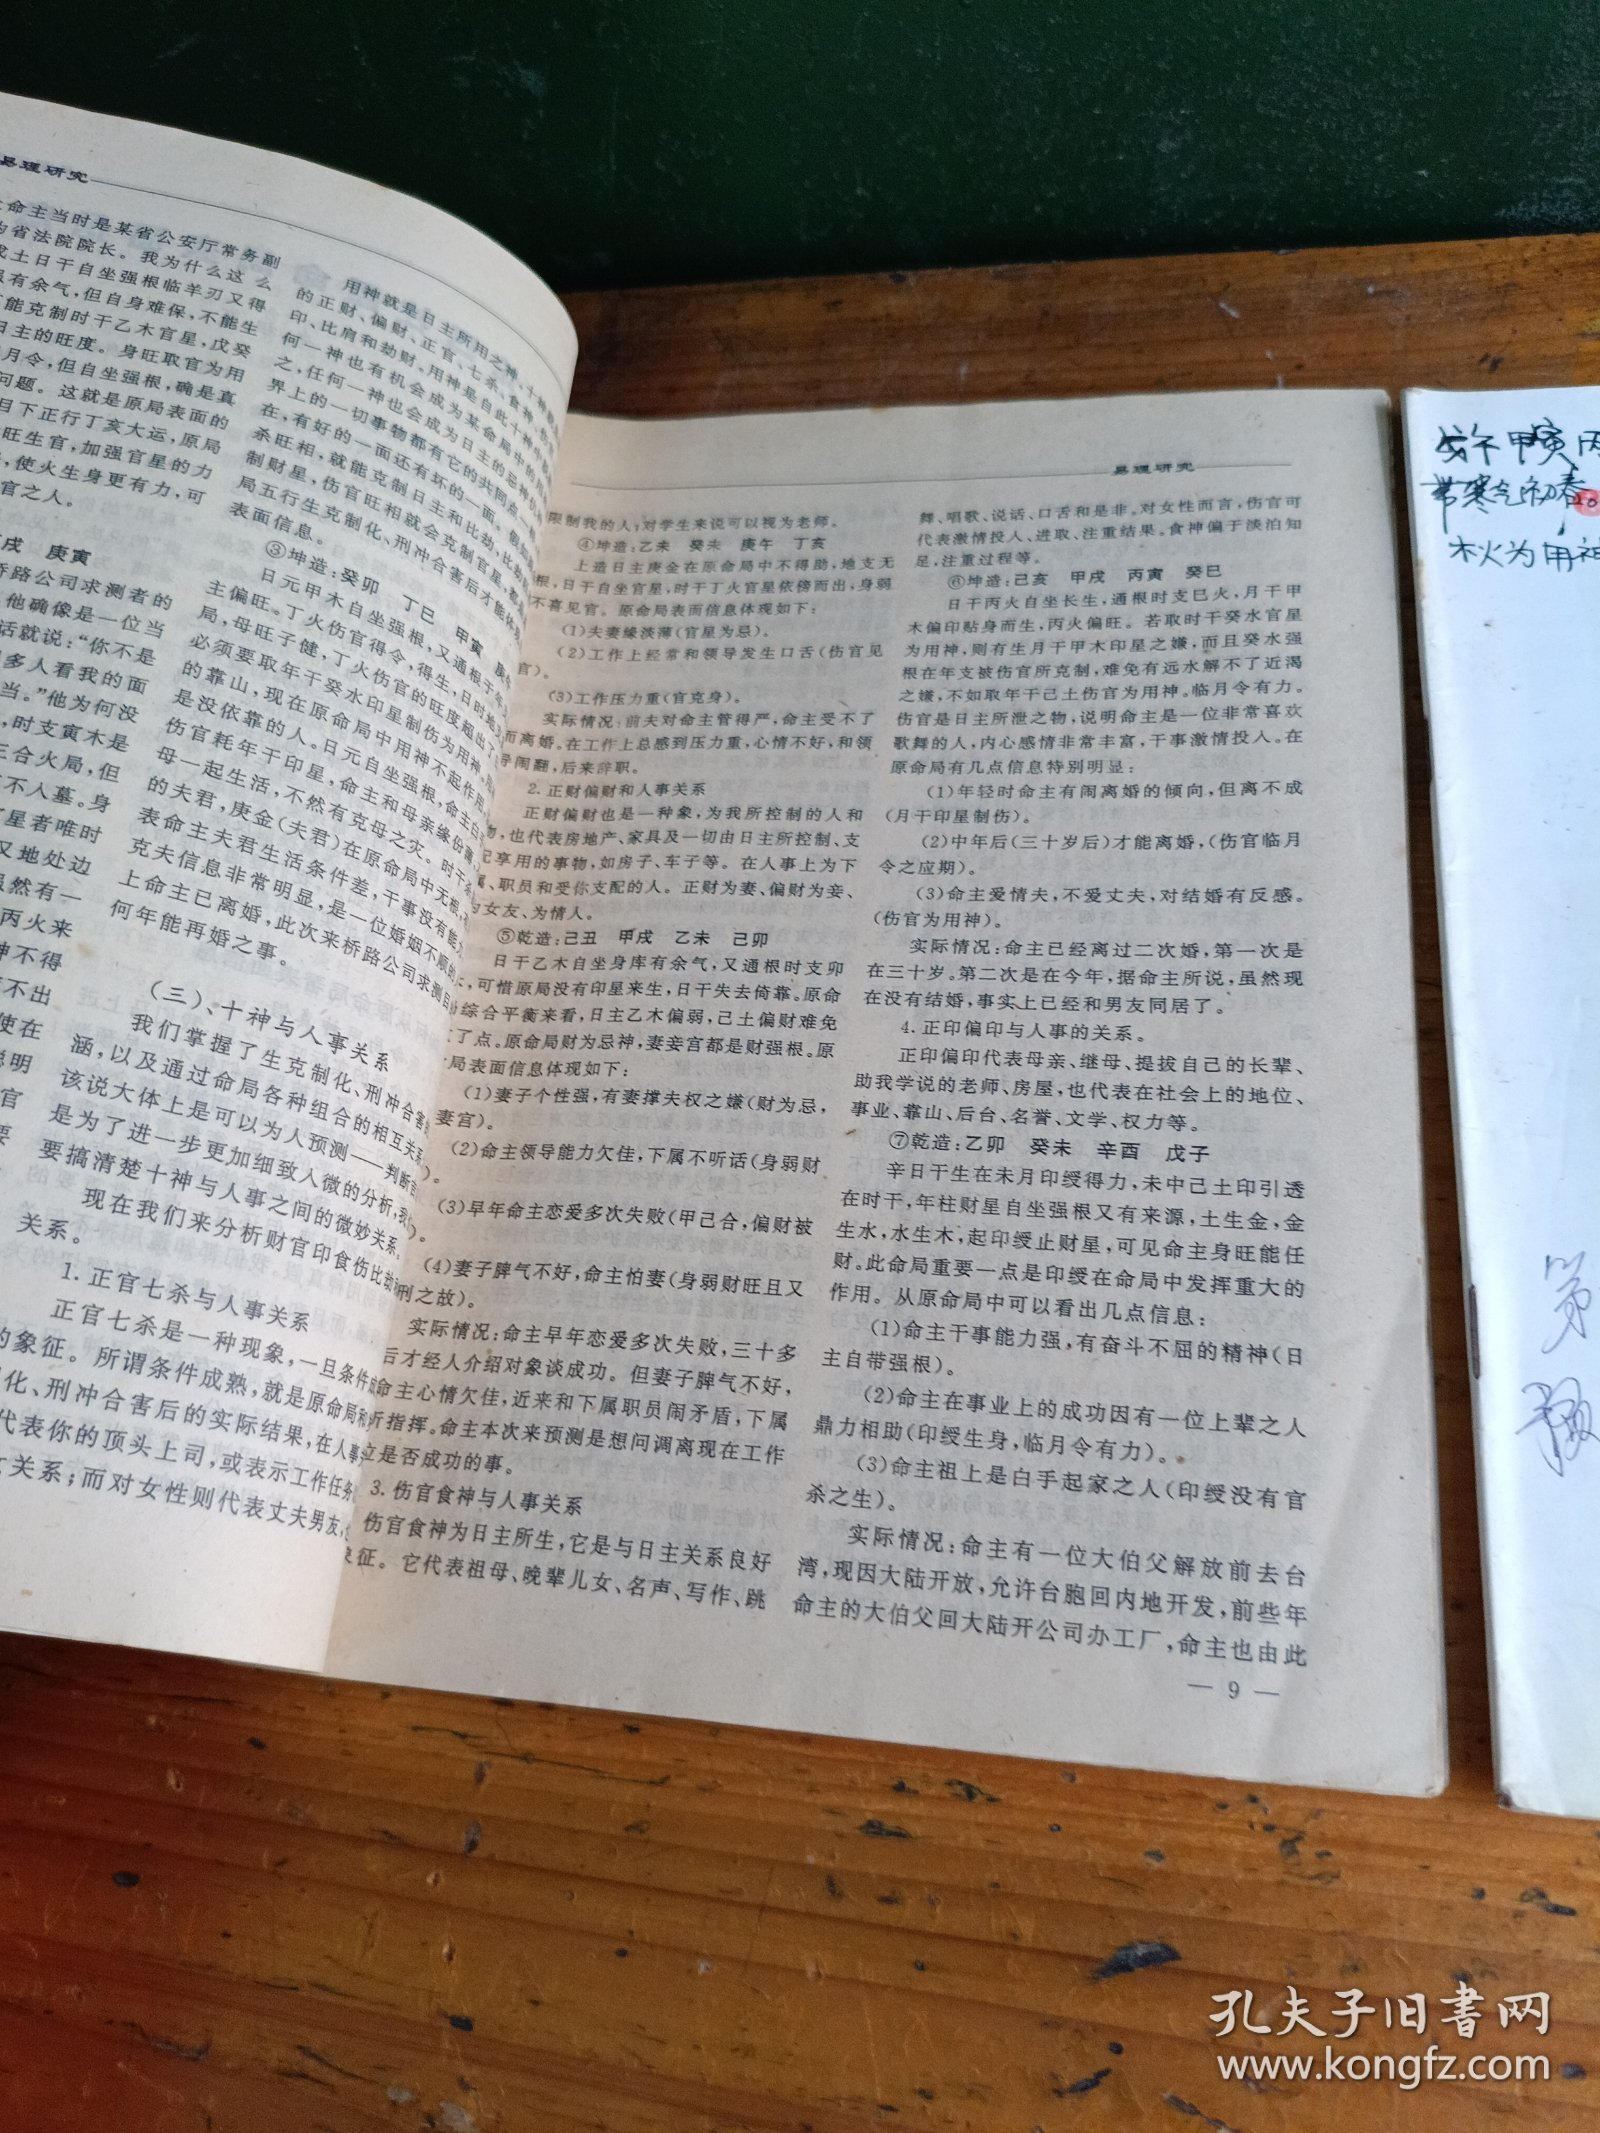 易理研究
命主当时是某省公安厅常务副
省法院院长。我为什么这么
土日干自坐强根临羊刃又得
有余气,但自身难保,不能生
能克制时干乙木官星,戊癸
日主的旺度。身旺取官为用
月令,但自坐强根,确是真
问题。这就是原局表面的
目下正行丁亥大运,原局
旺生官,加强官星的力
,使火生身更有力,可
官之人。
戌 庚寅
桥路公司求测者的
他确像是一位当
话就说:“你不是
多人看我的面
当。”他为何没
,时支寅木是
三合火局,但
不入墓。身
星者唯时
又地处边
虽然有一
丙火来
神不得
不出
使在
聪明
官
要
用神就是日主所用之神,十神
的正财、偏财、正官、七杀、食神、
印、比肩和劫财。用神是自此十神中
何一神也有机会成为某命局中的用
之,任何一神也会成为日主的忌神
界上的一切事物都有它的共同点一
在,有好的一面还有坏的一面。
杀旺相,就能克制日主和比劫,
制财星,伤官旺相就会克制官星,
局五行生克制化、刑冲合害后才能
表面信息。
③坤造:癸卯 丁巳 甲寅
日元甲木自坐强根,又通根于年
主偏旺。丁火伤官得令,得生,日时地
局,母旺子健,丁火伤官的旺度超出
必须要取年干癸水印星制伤为用神。
的靠山,现在原命局中用神不起作用,
是没依靠的人。日元自坐强根,命主
伤官耗年干印星,命主和母亲缘份
母一起生活,不然有克母之灾。时干
的夫君,庚金(夫君)在原命局中无根,
表命主夫君生活条件差,干事没有能
克夫信息非常明显,是一位婚姻不顺的
上命主已离婚,此次来桥路公司求测
何年能再婚之事。
(三)、十神与人事关系
我们掌握了生克制化、刑冲合害
涵,以及通过命局各种组合的相互关系
该说大体上是可以为人预测——判断
是为了进一步更加细致人微的分析,我
要搞清楚十神与人事之间的微妙关系,
现在我们来分析财官印食伤比劫
关系。
1.正官七杀与人事关系
正官七杀是一种现象,一旦条件
的象征。所谓条件成熟,就是原命局
化、刑冲合害后的实际结果,在人事
代表你的顶头上司,或表示工作任务
关系;而对女性则代表丈夫男友,
易理研究
限制我的人;对学生来说可以视为老师。
④坤造:乙未 癸未 庚午 丁亥
上造日主庚金在原命局中不得助,地支无
根,日干自坐官星,时干丁火官星依傍而出,身弱
不喜见官。原命局表面信息体现如下:
(1)夫妻缘淡薄(官星为忌)。
(2)工作上经常和领导发生口舌(伤官见
官)。
(3)工作压力重(官克身)。
实际情况:前夫对命主管得严,命主受不了
而离婚。在工作上总感到压力重,心情不好,和领
导闹翻,后来辞职。
2.正财偏财和人事关系
正财偏财也是一种象,为我所控制的人和
物,也代表房地产、家具及一切由日主所控制、支
配享用的事物,如房子、车子等。在人事上为下
属、职员和受你支配的人。正财为妻、偏财为妾、
为女友、为情人。
⑤乾造:己丑 甲戌 乙未 己卯
日干乙木自坐身库有余气,又通根时支卯
,可惜原局没有印星来生,日干失去倚靠。原命
综合平衡来看,日主乙木偏弱,己土偏财难免
了点。原命局财为忌神,妻妾宫都是财强根。原
局表面信息体现如下:
(1)妻子个性强,有妻撑夫权之嫌(财为忌,
妻宫)。
(2)命主领导能力欠佳,下属不听话(身弱财
)。
(3)早年命主恋爱多次失败(甲己合,偏财被
)。
(4)妻子脾气不好,命主怕妻(身弱财旺且又
刑之故)。
实际情况:命主早年恋爱多次失败,三十多
后才经人介绍对象谈成功。但妻子脾气不好,
命主心情欠佳,近来和下属职员闹矛盾,下属
听指挥。命主本次来预测是想问调离现在工作
是否成功的事。
3.伤官食神与人事关系
伤官食神为日主所生,它是与日主关系良好
征。它代表祖母、晚辈儿女、名声、写作、跳
舞、唱歌、说话、口舌和是非。对女性而言,伤官可
代表激情投人、进取、注重结果。食神偏于淡泊知
足,注重过程等。
⑥坤造:己亥 甲戌 丙寅 癸巳
日干丙火自坐长生,通根时支巳火,月干甲
木偏印贴身而生,丙火偏旺。若取时干癸水官星
为用神,则有生月干甲木印星之嫌,而且癸水强
根在年支被伤官所克制,难免有远水解不了近渴
之嫌,不如取年干己土伤官为用神。临月令有力。
伤官是日主所泄之物,说明命主是一位非常喜欢
歌舞的人,内心感情非常丰富,干事激情投人。在
原命局有几点信息特别明显:
(1)年轻时命主有闹离婚的倾向,但离不成
(月干印星制伤)。
(2)中年后(三十岁后)才能离婚,(伤官临月
令之应期)。
(3)命主爱情夫,不爱丈夫,对结婚有反感。
(伤官为用神)。
实际情况:命主已经离过二次婚,第一次是
在三十岁。第二次是在今年,据命主所说,虽然现
在没有结婚,事实上已经和男友同居了。
4.正印偏印与人事的关系。
正印偏印代表母亲、继母、提拔自己的长辈、
助我学说的老师、房屋,也代表在社会上的地位、
事业、靠山、后台、名誉、文学、权力等。
⑦乾造:乙卯 癸未 辛酉 戊子
辛日干生在未月印绶得力,未中己土印引透
在时干,年柱财星自坐强根又有来源,土生金,金
生水,水生木,起印绶止财星,可见命主身旺能任
财。此命局重要一点是印绶在命局中发挥重大的
作用。从原命局中可以看出几点信息:
(1)命主干事能力强,有奋斗不屈的精神(日
主自带强根)。
(2)命主在事业上的成功因有一位上辈之人
鼎力相助(印绶生身,临月令有力)。
(3)命主祖上是白手起家之人(印绶没有官
杀之生)。
实际情况:命主有一位大伯父解放前去台
湾,现因大陆开放,允许台胞回内地开发,前些年
命主的大伯父回大陆开公司办工厂,命主也由此
— 9 —
戊午甲寅丙
带寒气初春
木火为用神
第
孔夫子旧书网
www.kongfz.com